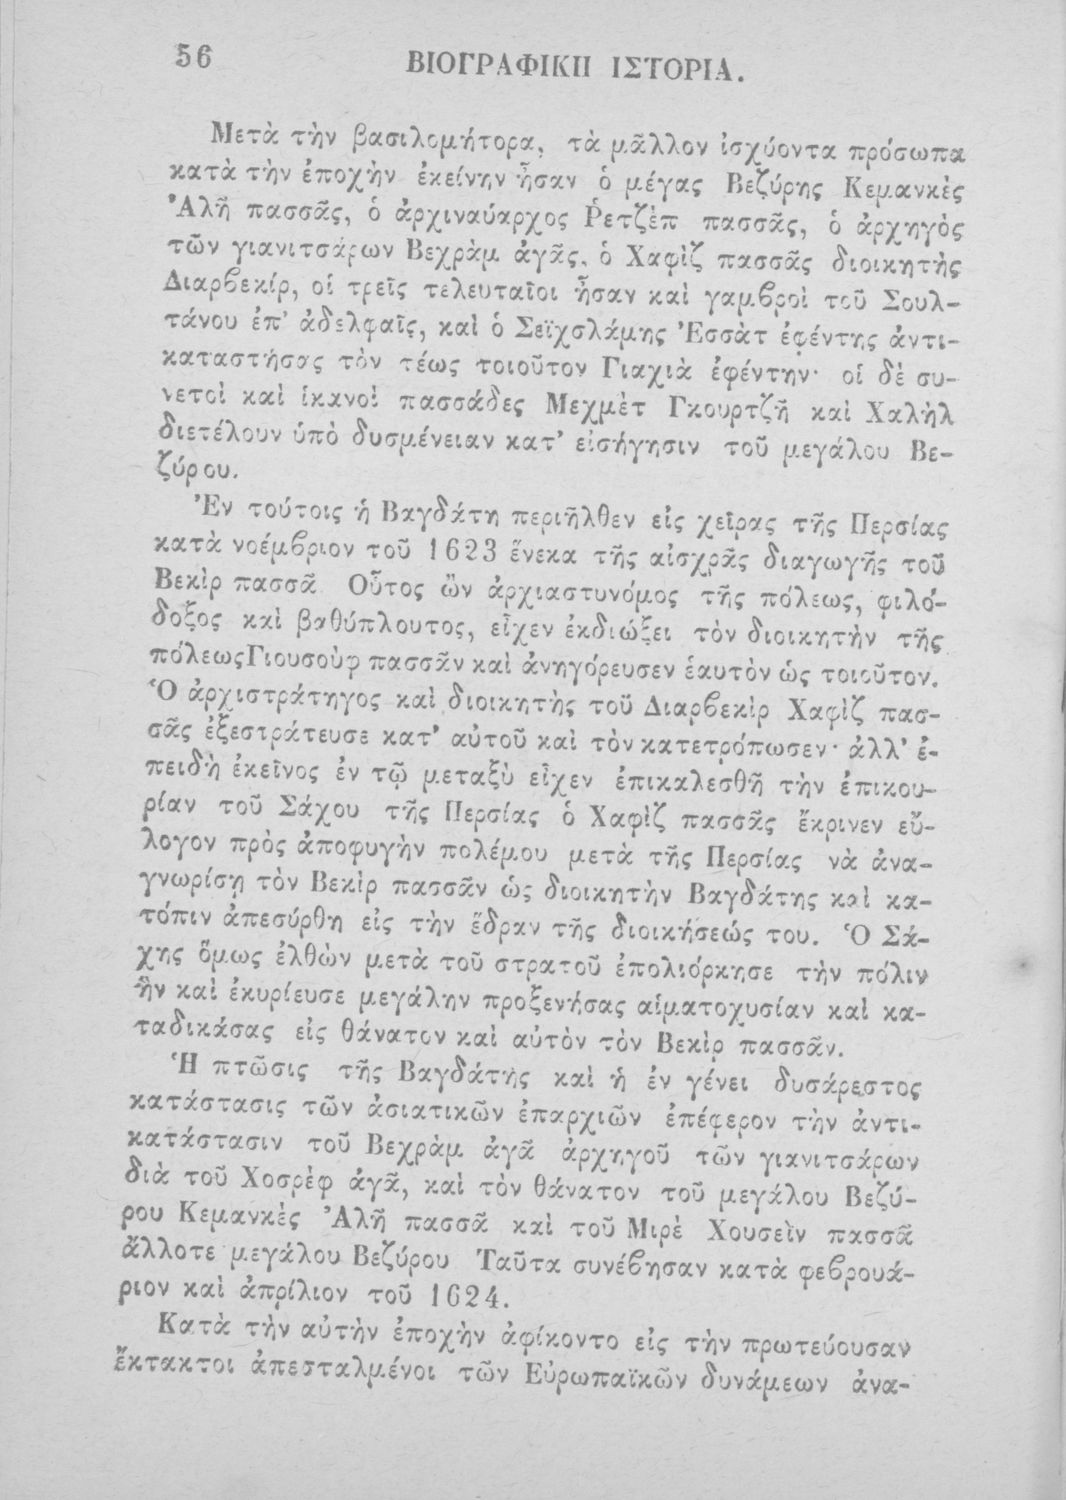 56
ΒΙΟΓΡΑΦΙΚΗ ΙΣΤΟΡΙΑ.
Μετὰ τὴν βασιλομήτορα, τὰ μᾶλλον ἰσχύοντα πρόσωπα
κατὰ τὴν ἐποχὴν ἐκείνην ἦσαν ὁ μέγας Βεζύρης Κεμανκὲς
Ἀλῆ πασσᾶς, ὁ ἀρχιναύαρχος Ῥετζὲπ πασσᾶς, ὁ ἀρχηγὸς
τῶν γιανιτσάρων Βεχρὰμ ἀγᾶς, ὁ Χαφὶζ πασσᾶς διοικητὴς
Διαρβεκίρ, οἱ τρεῖς τελευταῖοι ἦσαν καὶ γαμβροὶ τοῦ Σουλ-
τάνου ἐπ' ἀδελφαῖς, καὶ ὁ Σεϊχσλάμης Ἐσσὰτ ἐφέντης ἀντι-
καταστήσας τὸν τέως τοιοῦτον Γιαχιὰ ἐφέντην· οἱ δὲ συ-
νετοὶ καὶ ἱκανοὶ πασσάδες Μεχμὲτ Γκουρτζῆ καὶ Χαλὴλ
διετέλουν ὑπὸ δυσμένειαν κατ' εἰσήγησιν τοῦ μεγάλου Βε-
ζύρου.
Ἐν τούτοις ἡ Βαγδάτη περιῆλθεν εἰς χεῖρας τῆς Περσίας
κατὰ νοέμβριον τοῦ 1623 ἕνεκα τῆς αἰσχρᾶς διαγωγῆς τοῦ
Βεκὶρ πασσᾶ Οὗτος ὢν ἀρχιαστυνόμος τῆς πόλεως, φιλό-
δοξος καὶ βαθύπλουτος, εἶχεν ἐκδιώξει τὸν διοικητὴν τῆς
πόλεωςΓιουσοὺφ πασσᾶν καὶ ἀνηγόρευσεν ἑαυτὸν ὡς τοιοῦτον.
Ὁ ἀρχιστράτηγος καὶ διοικητὴς τοῦ Διαρβεκὶρ Χαφὶζ πασ-
σᾶς ἐξεστράτευσε κατ' αὐτοῦ καὶ τὸν κατετρόπωσεν· ἀλλ' ἐ-
πειδὴ ἐκεῖνος ἐν τῷ μεταξὺ εἶχεν ἐπικαλεσθῆ τὴν ἐπικου-
ρίαν τοῦ Σάχου τῆς Περσίας ὁ Χαφὶζ πασσᾶς ἔκρινεν εὔ-
λογον πρὸς ἀποφυγὴν πολέμου μετὰ τῆς Περσίας νὰ ἀνα-
γνωρίσῃ τὸν Βεκὶρ πασσᾶν ὡς διοικητὴν Βαγδάτης καὶ κα-
τόπιν ἀπεσύρθη εἰς τὴν ἕδραν τῆς διοικήσεώς του. Ὁ Σά-
χης ὅμως ἐλθὼν μετὰ τοῦ στρατοῦ ἐπολιόρκησε τὴν πόλιν
ἣν καὶ ἐκυρίευσε μεγάλην προξενήσας αἱματοχυσίαν καὶ κα-
ταδικάσας εἰς θάνατον καὶ αὐτὸν τὸν Βεκὶρ πασσᾶν.
Ἡ πτῶσις τῆς Βαγδάτης καὶ ἡ ἐν γένει δυσάρεστος
κατάστασις τῶν ἀσιατικῶν ἐπαρχιῶν ἐπέφερον τὴν ἀντι-
κατάστασιν τοῦ Βεχρὰμ ἀγᾶ ἀρχηγοῦ τῶν γιανιτσάρων
διὰ τοῦ Χοσρὲφ ἀγᾶ, καὶ τὸν θάνατον τοῦ μεγάλου Βεζύ-
ρου Κεμανκὲς Ἀλῆ πασσᾶ καὶ τοῦ Μιρὲ Χουσεῒν πασσᾶ
ἄλλοτε μεγάλου Βεζύρου Ταῦτα συνέβησαν κατὰ φεβρουά-
ριον καὶ ἀπρίλιον τοῦ 1624.
Κατὰ τὴν αὐτὴν ἐποχὴν ἀφίκοντο εἰς τὴν πρωτεύουσαν
ἔκτακτοι ἀπεσταλμένοι τῶν Εὐρωπαϊκῶν δυνάμεων ἀνα-